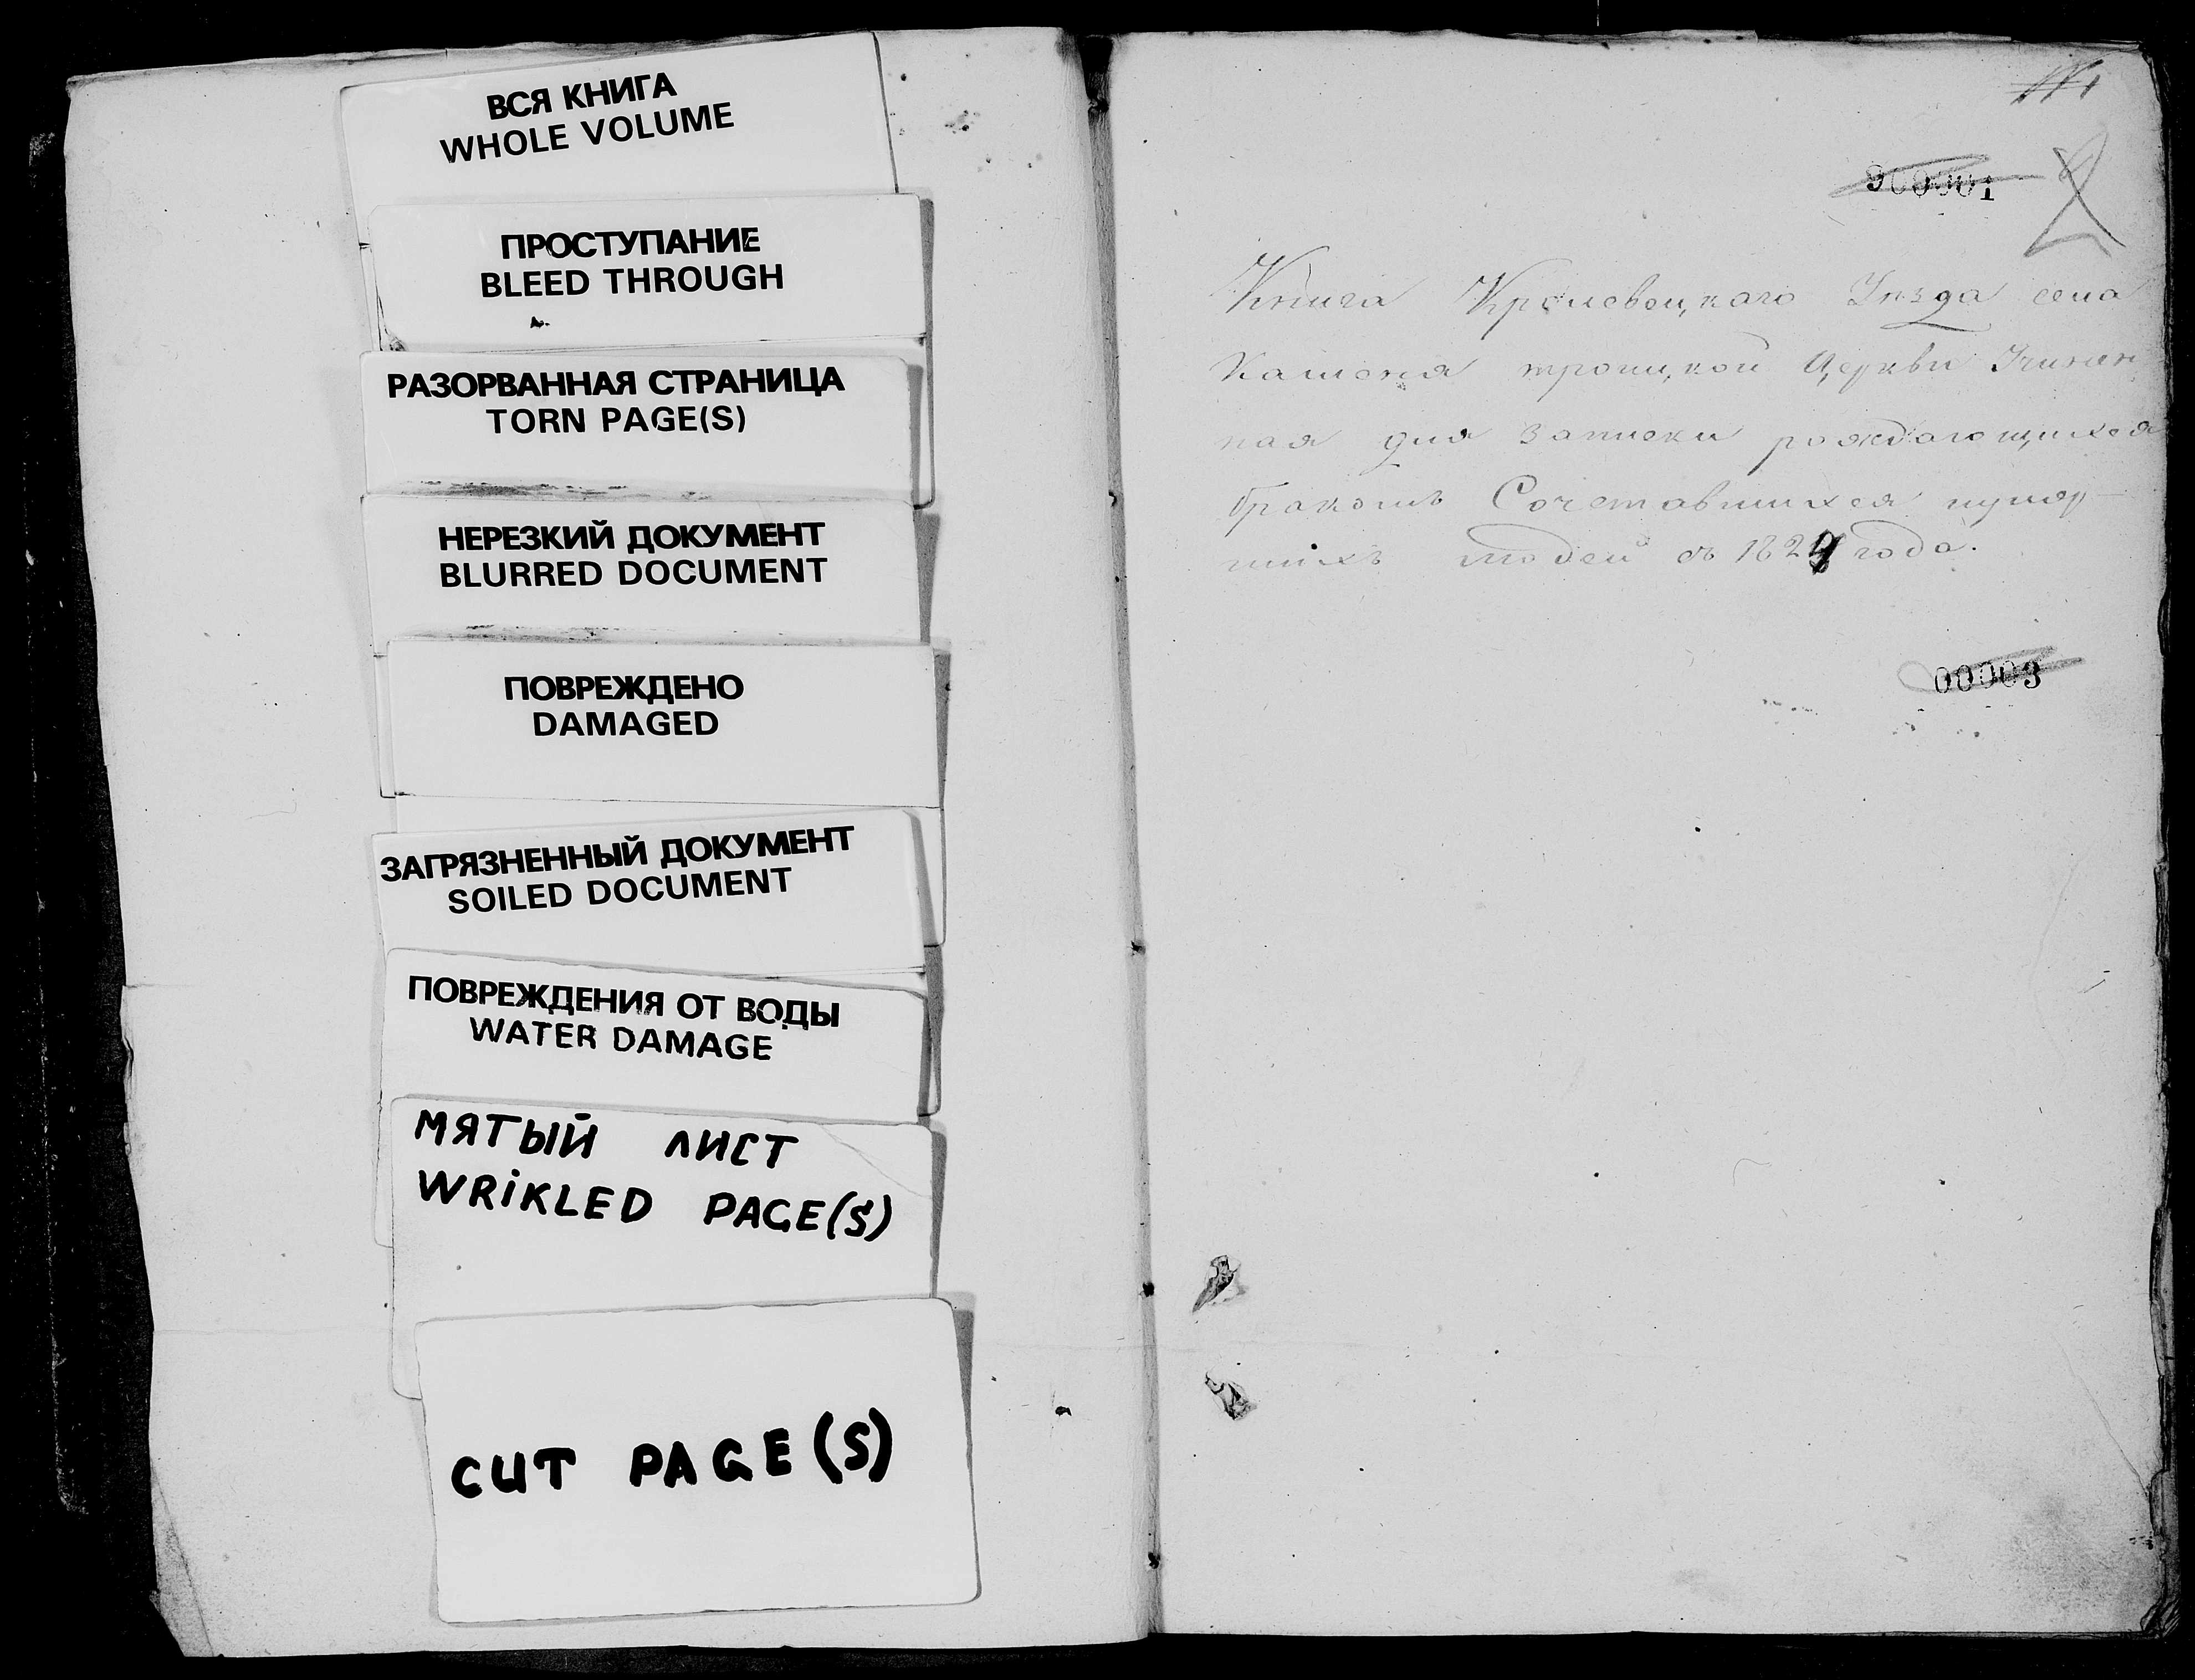 ВСЯ КНИГА
WHOLE VOLUME
ПРОСТУПАНИЕ
BLEED THROUGH
РАЗОРВАННАЯ СТРАНИЦА
TORN PAGE(S)
НЕРЕЗКИЙ ДОКУМЕНТ
BLURRED DOCUMENT
ПОВРЕЖДЕНО
DAMAGED
ЗАГРЯЗНЕННЫЙ ДОКУМЕНТ
SOILED DOCUMENT
ПОВРЕЖДЕНИЯ ОТ ВОДЫ
WATER DAMAGE
МЯТЫЙ ЛИСТ
WRiKLED PAGE(S)
CUT PAGE(S)
Книга Кролевецкаго Уѣзда села
Каменя троицкой Церкви Учинен
ная для записки рождающихся
бракомъ Сочетавшихся иумер-
шихъ людей съ года.
00003